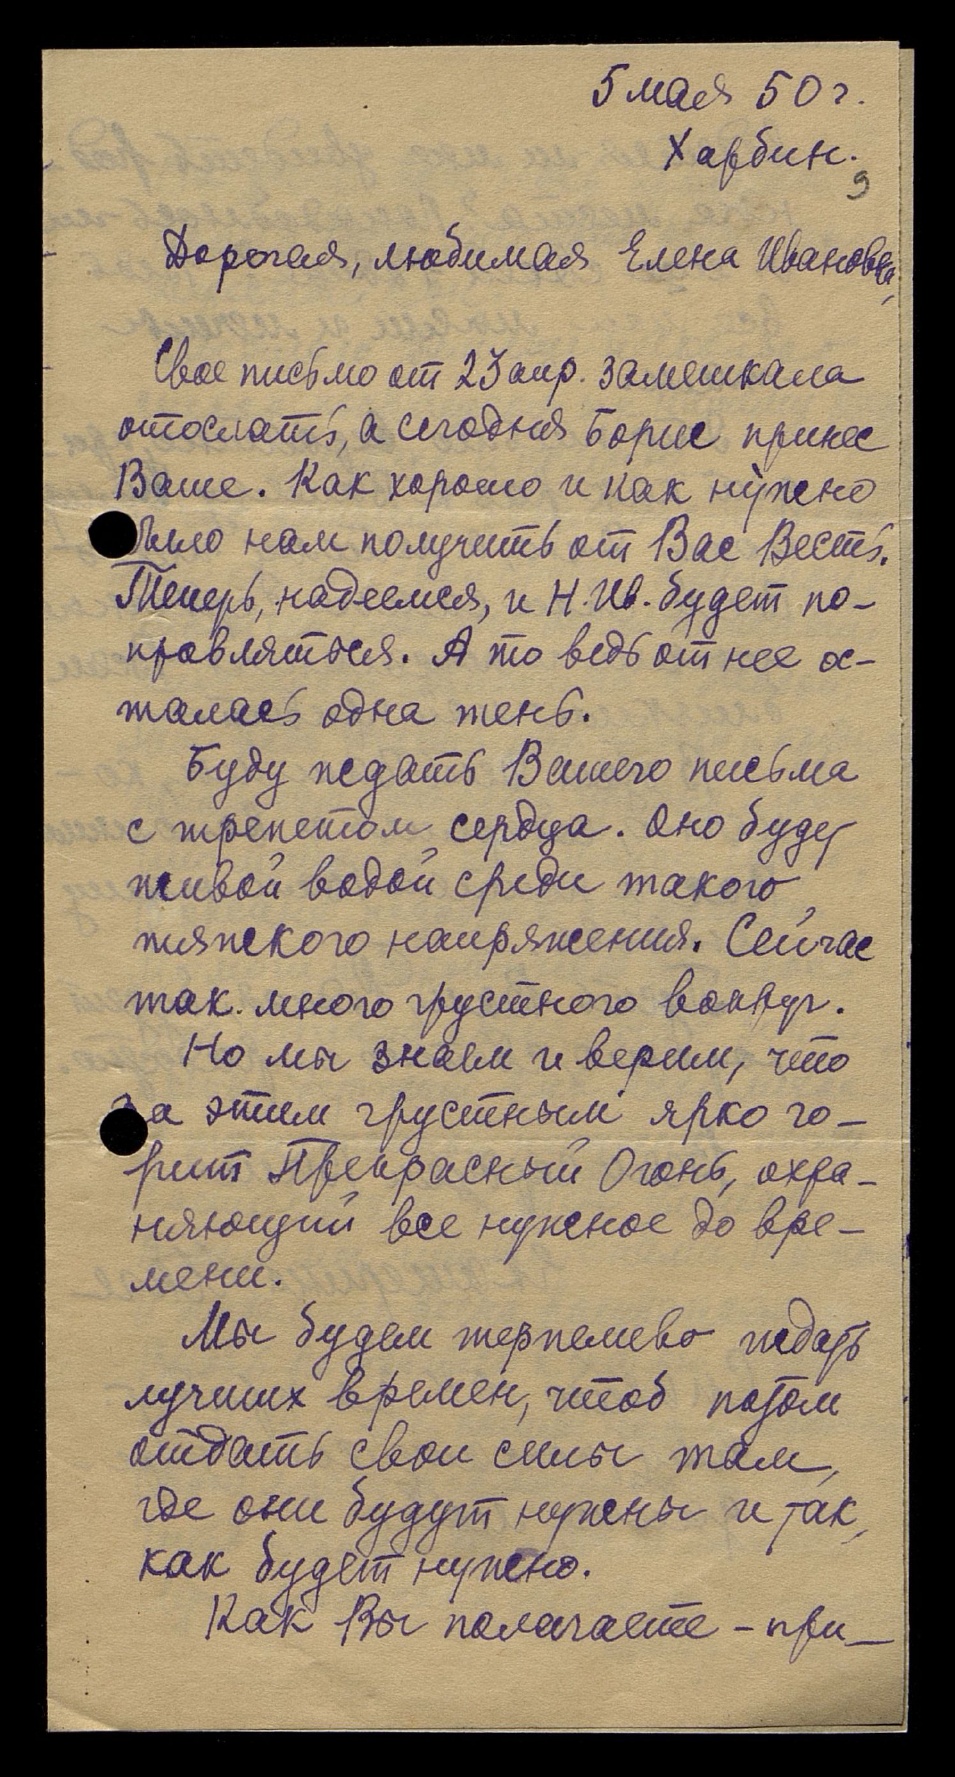 5 мая 50 г.
Харбин.
9
Дорогая, любимая Елена Ивановна,
Свое письмо от 23 апр. замешкала
отослать, а сегодня Борис принес
Ваше. Как хорошо и как нужно
было нам получить от Вас Весть.
Теперь, надеемся, и Н. Ив. будет по-
правляться. А то ведь от нее ос-
талась одна тень.
Буду ждать Вашего письма
с трепетом сердца. Оно будет
живой водой среди такого
тяжкого напряжения. Сейчас
так много грустного вокруг.
Но мы знаем и верим, что
за этим грустным ярко го-
рит Прекрасный Огонь, охра-
няющий все нужное до вре-
мени.
Мы будем терпеливо ждать
лучших времен, чтоб потом
отдать свои силы там,
где они будут нужны и так,
как будет нужно.
Как Вы полагаете - при-